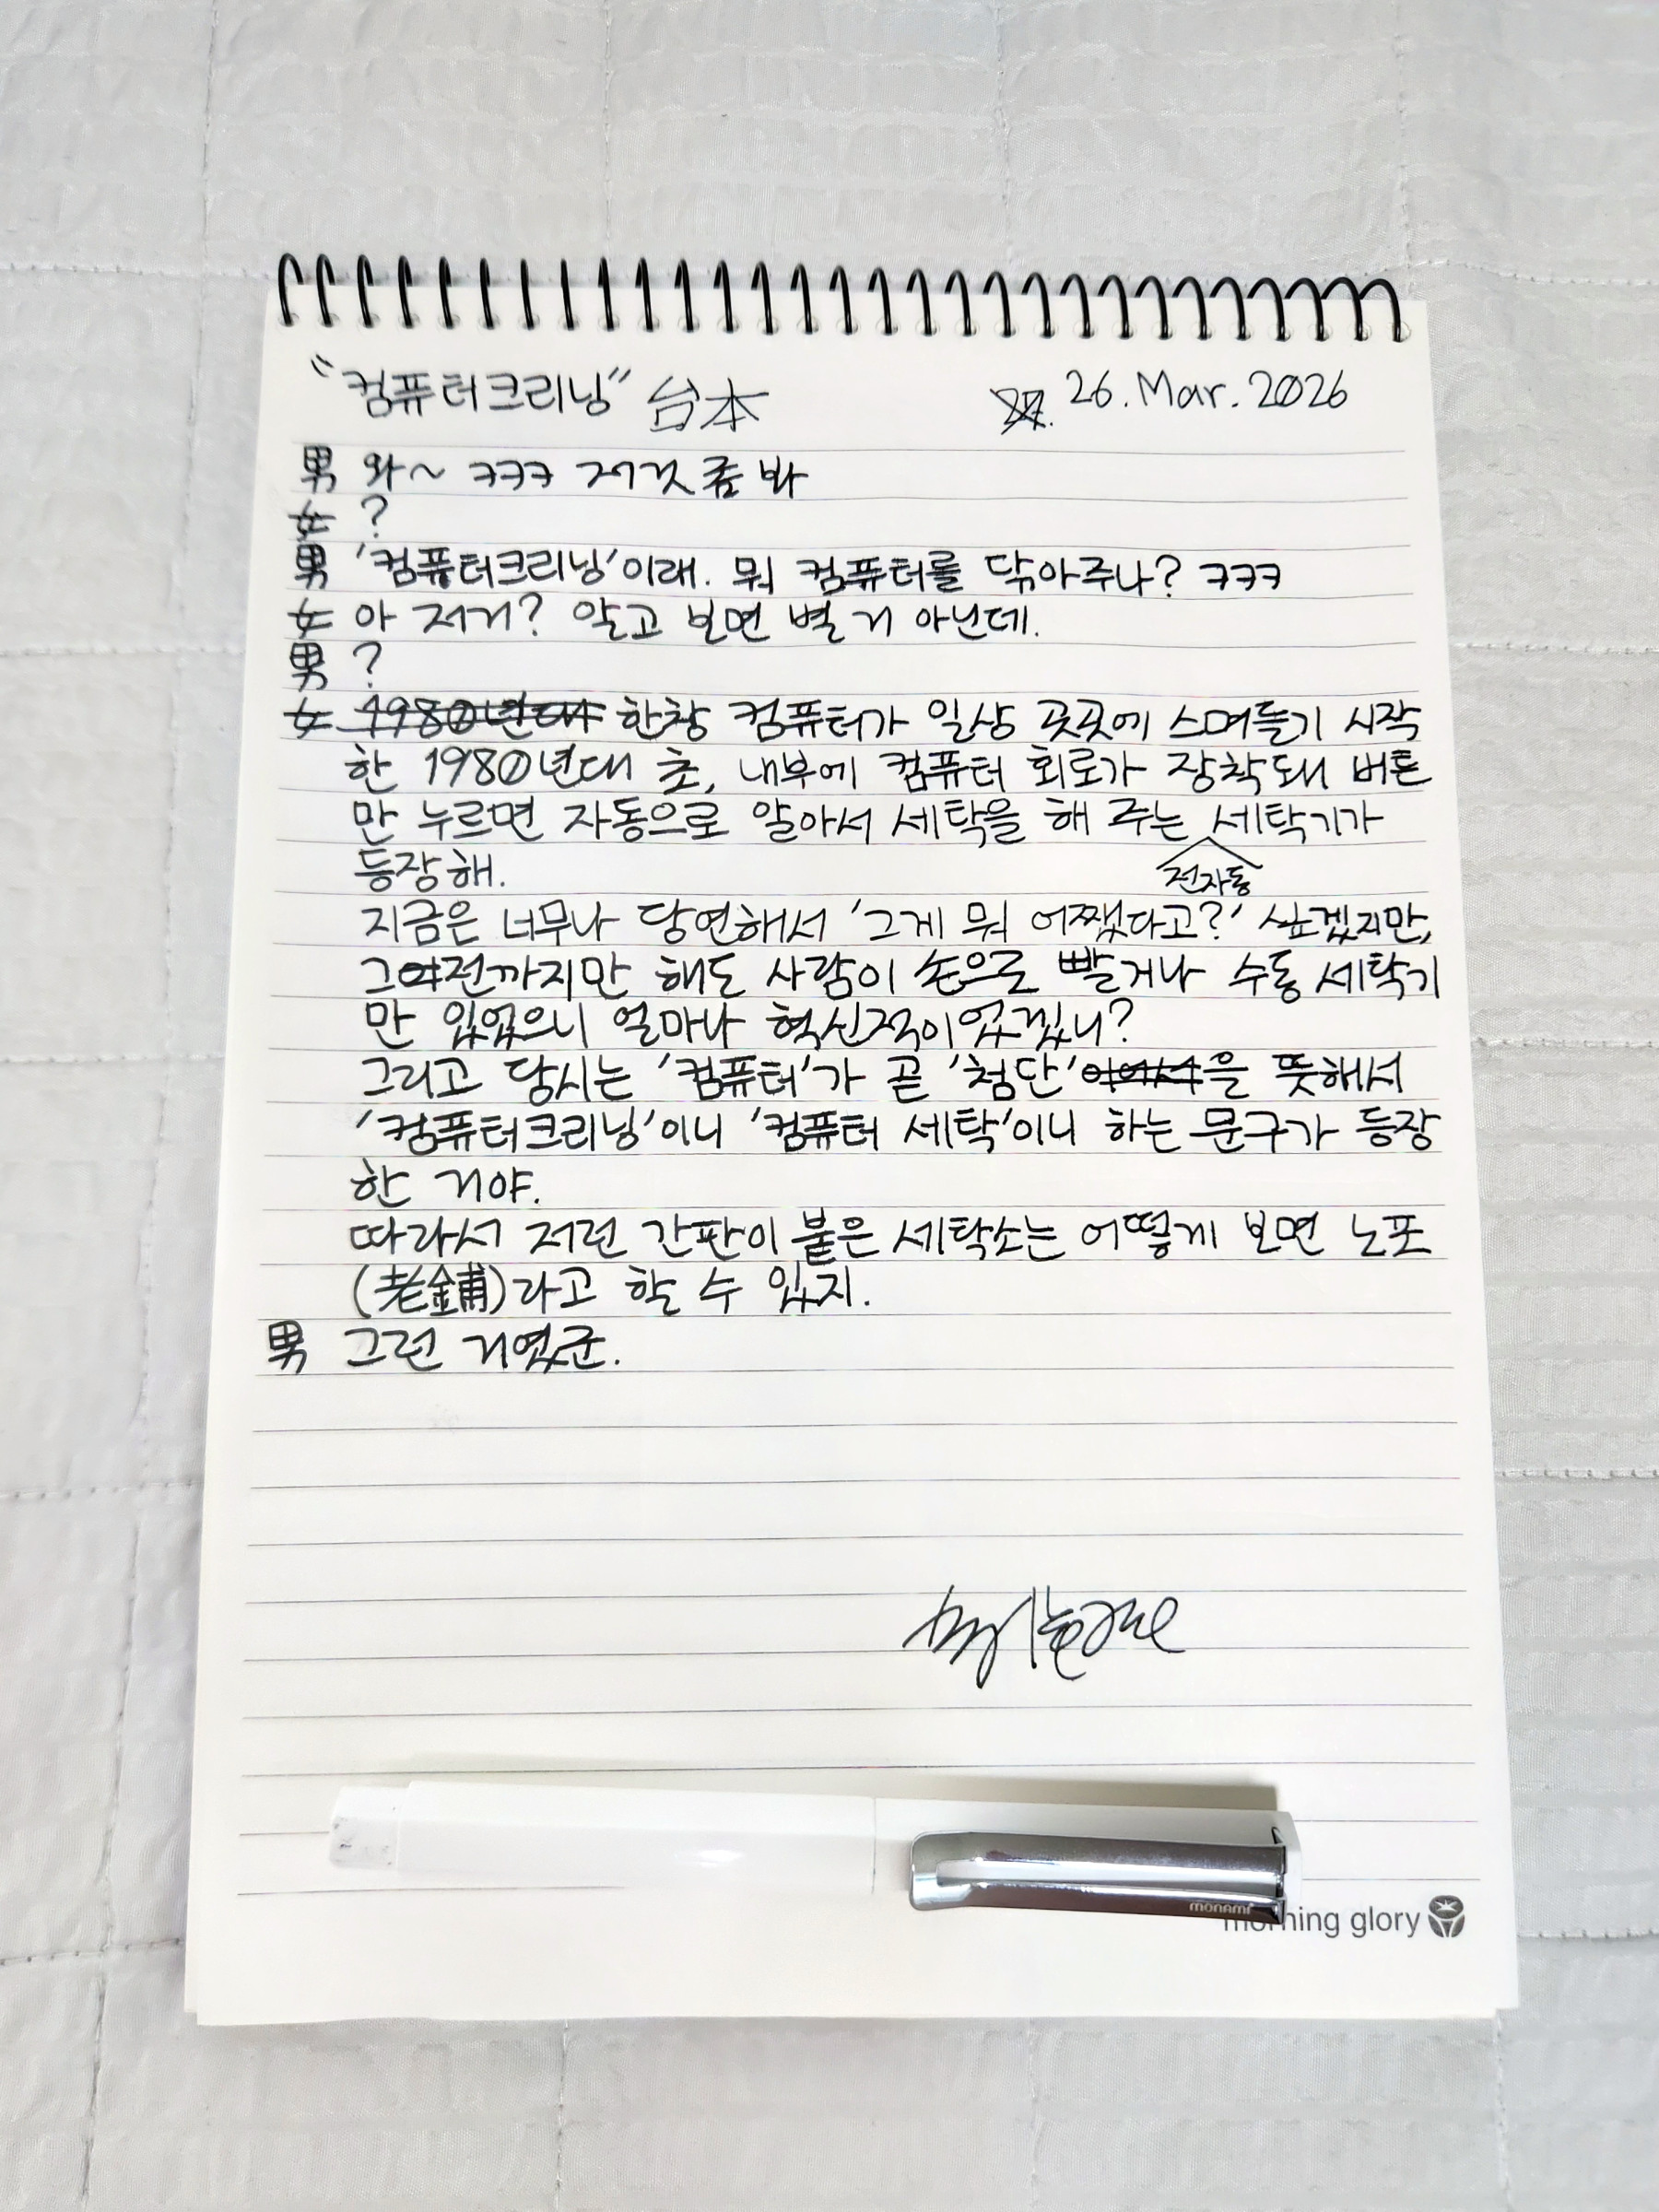 "컴퓨터크리닝" 台本 26. Mar. 2026
男 와~ ㅋㅋㅋ 저것 좀 봐
女 ?
男 '컴퓨터크리닝'이래. 뭐 컴퓨터를 닦아주나? ㅋㅋㅋ
女 아 저거? 알고 보면 별 거 아닌데.
男 ?
女 1980년대 한창 컴퓨터가 일상 곳곳에 스며들기 시작
한 1980년대 초, 내부에 컴퓨터 회로가 장착돼 버튼
만 누르면 자동으로 알아서 세탁을 해 주는 세탁기가
등장해.
전자동
지금은 너무나 당연해서 '그게 뭐 어쨌다고?' 싶겠지만,
그전까지만 해도 사람이 손으로 빨거나 수동 세탁기
만 있었으니 얼마나 혁신적이었겠니?
그리고 당시는 '컴퓨터'가 곧 '첨단'을 뜻해서
'컴퓨터크리닝'이니 '컴퓨터 세탁'이니 하는 문구가 등장
한 거야.
따라서 저런 간판이 붙은 세탁소는 어떻게 보면 노포
(老鋪)라고 할 수 있지.
男 그런 거였군.
monami
morning glory